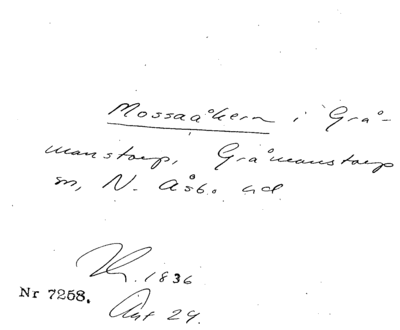 Mossaåkern i Grå-
manstorp, Gråmanstorps
sn, N. Åsb. hd
1836
Nr 7258.
Akt 29.